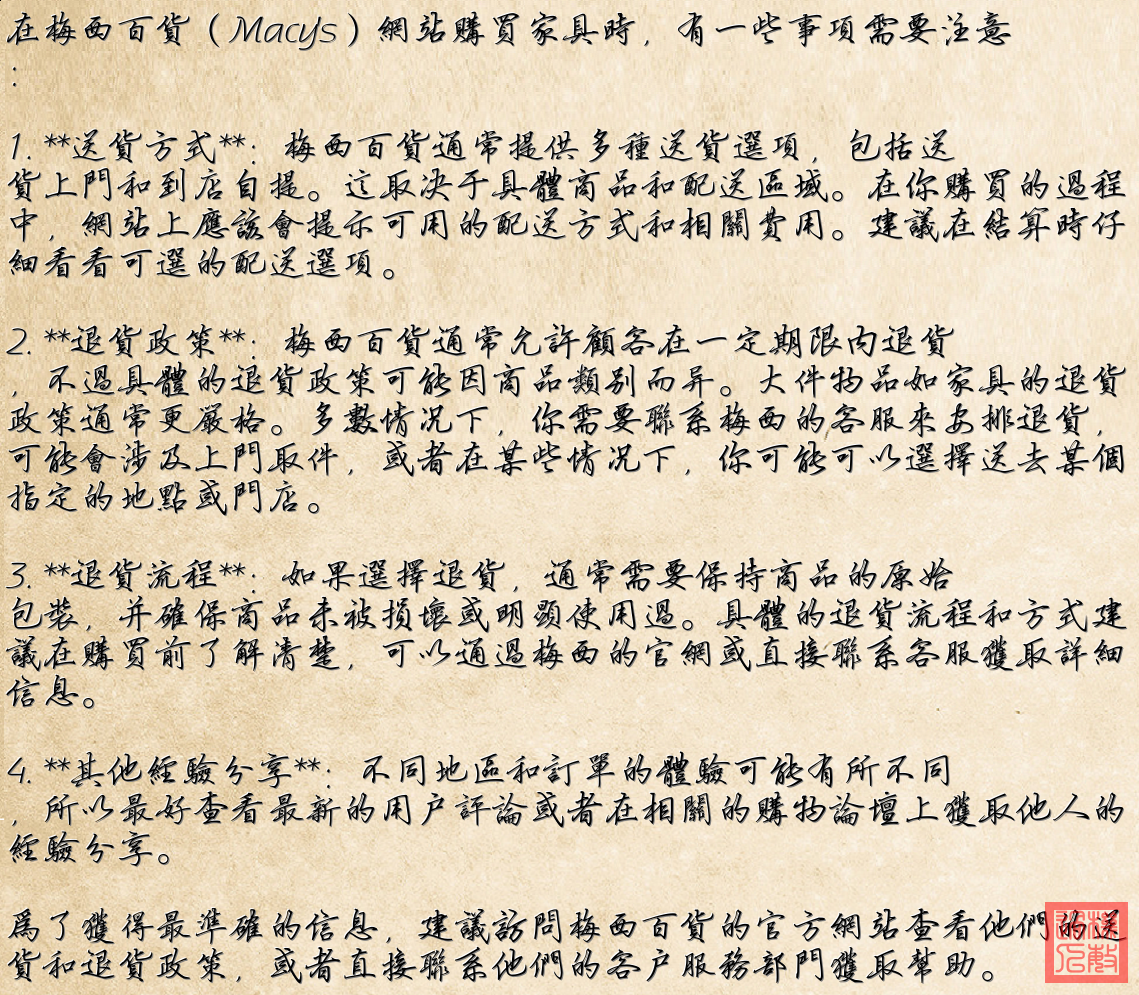 在梅西百貨（Macys）網站購買家具時，有一些事項需要注意
：
1. **送貨方式**：梅西百貨通常提供多種送貨選項，包括送
貨上門和到店自提。這取决于具體商品和配送區域。在你購買的過程
中，網站上應該會提示可用的配送方式和相關費用。建議在結算時仔
細看看可選的配送選項。
2. **退貨政策**：梅西百貨通常允許顧客在一定期限内退貨
，不過具體的退貨政策可能因商品類别而异。大件物品如家具的退貨
政策通常更嚴格。多數情况下，你需要聯系梅西的客服來安排退貨，
可能會涉及上門取件，或者在某些情况下，你可能可以選擇送去某個
指定的地點或門店。
3. **退貨流程**：如果選擇退貨，通常需要保持商品的原始
包裝，并確保商品未被損壞或明顯使用過。具體的退貨流程和方式建
議在購買前了解清楚，可以通過梅西的官網或直接聯系客服獲取詳細
信息。
4. **其他經驗分享**：不同地區和訂單的體驗可能有所不同
，所以最好查看最新的用户評論或者在相關的購物論壇上獲取他人的
經驗分享。
爲了獲得最準確的信息，建議訪問梅西百貨的官方網站查看他們的送
貨和退貨政策，或者直接聯系他們的客户服務部門獲取幫助。